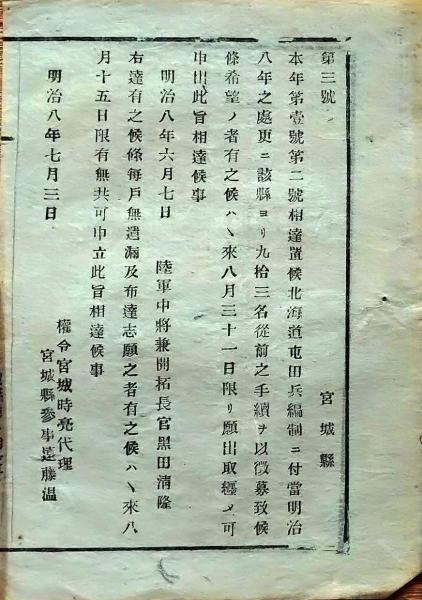 第三號
宮城縣
本年第壹號第二號相達置候北海道屯田兵編制ニ付當明治
八年之處更ニ該縣ヨリ九拾三名從前之手續ヲ以徵募致候
條希望ノ者有之候ハヽ來八月三十一日限リ願出取纒メ可
申出此旨相達候事
明治八年六月七日 陸軍中將兼開拓長官黑田淸隆
右達有之候條每戶無遺漏及布達志願之者有之候ハヽ來八
月十五日限有無共可申立此旨相達候事
明治八年七月三日
權令宮城時亮代理
宮城縣參事遠藤温